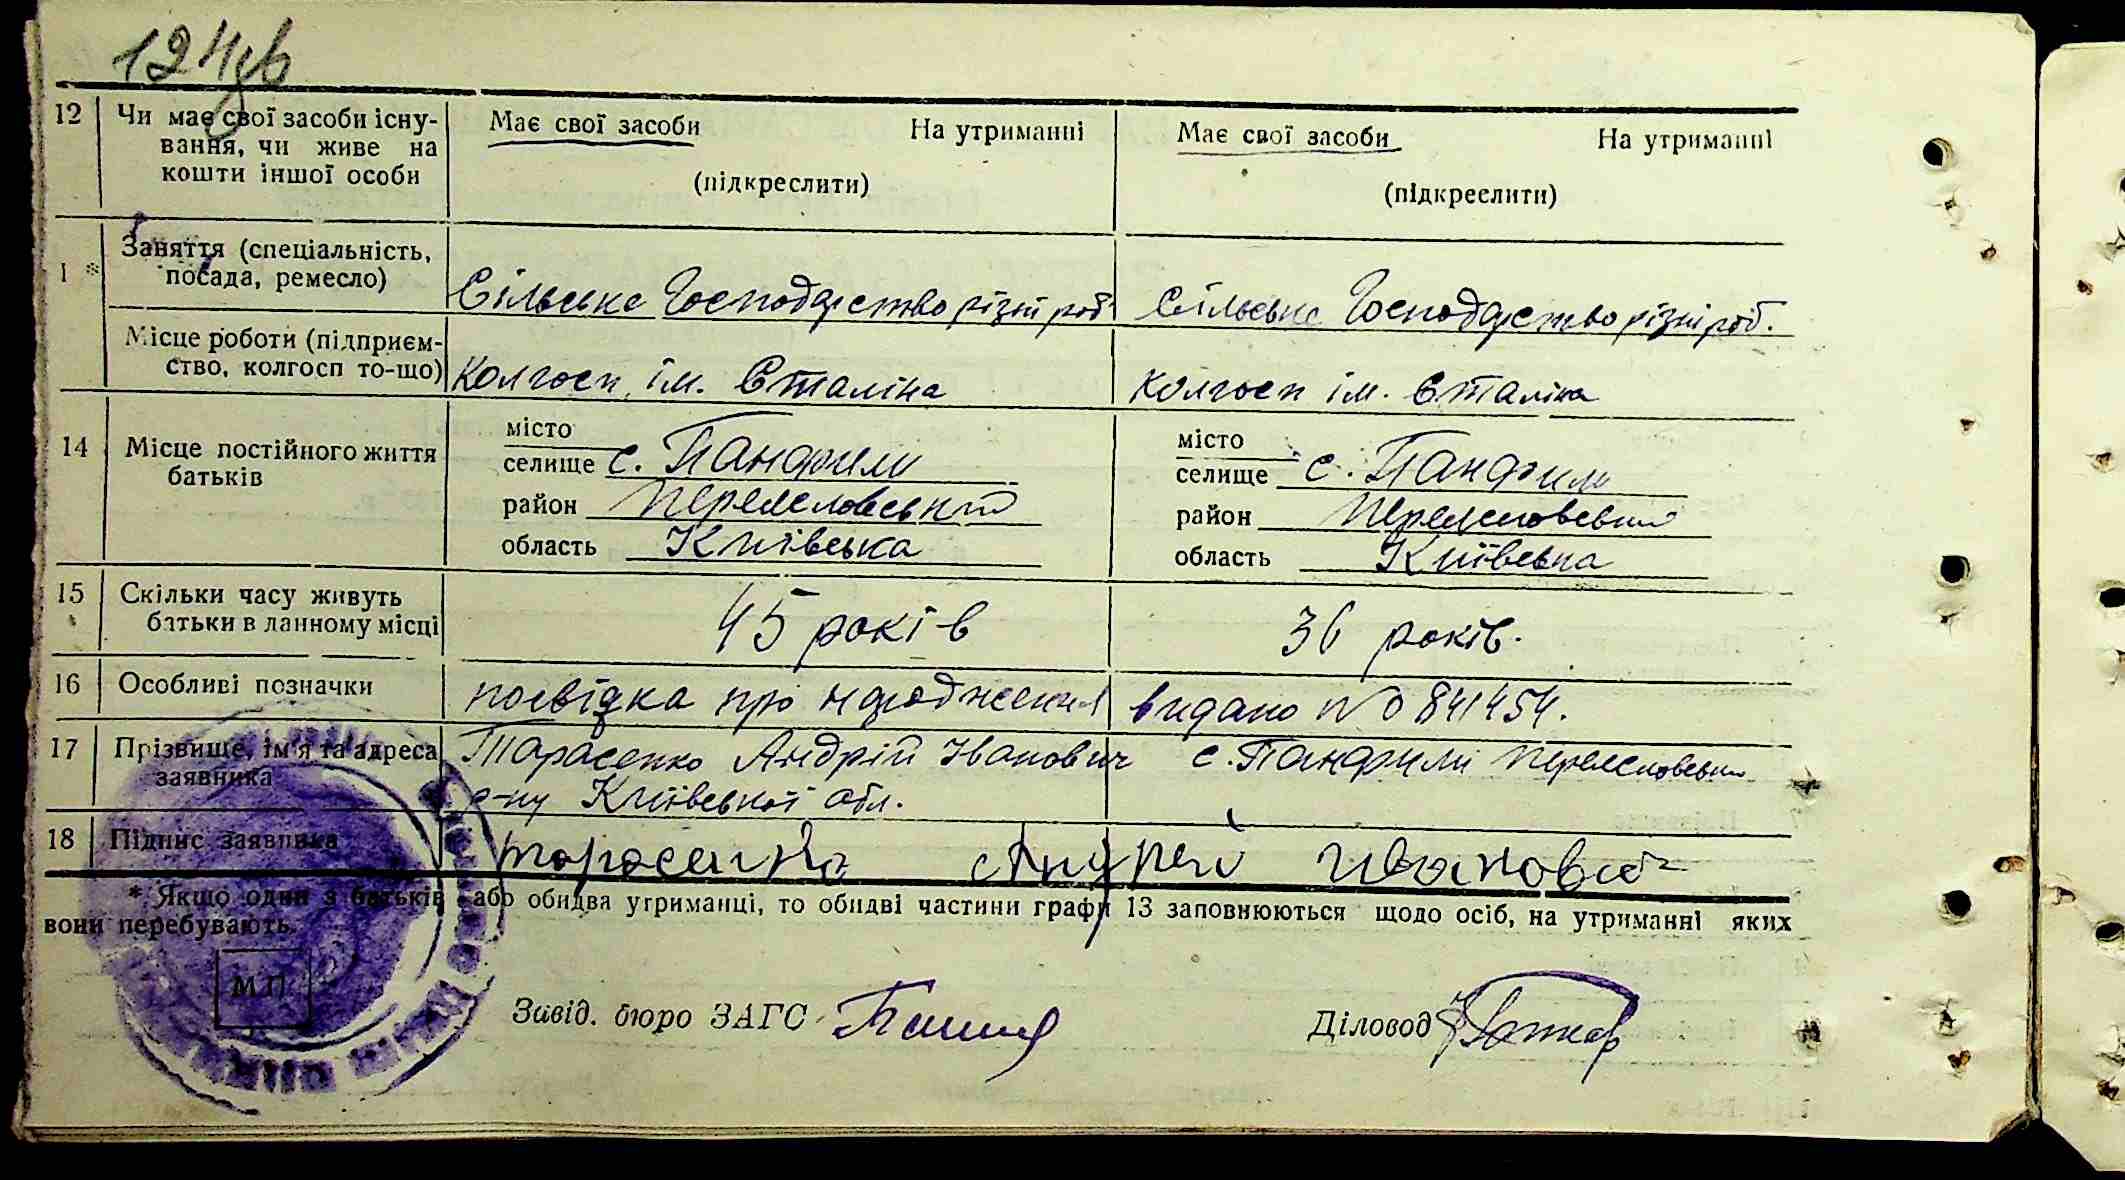 12
12 Чи має свої засоби існу- Має свої засоби На утриманні Має свої засоби На утриманні
вання, чи живе на
кошти іншої особи (підкреслити) (підкреслити)
1 * Заняття (спеціальність,
посада, ремесло) Сільське Господарство різні роб. Сільське Господарство різні роб.
Місце роботи (підприєм-
ство, колгосп то-що) Колгосп ім. Сталіна Колгосп ім. Сталіна
14 Місце постійного життя місто місто
батьків селище с. Панфили селище с. Панфили
район Переяславський район Переяславський
область Київська область Київська
15 Скільки часу живуть
батьки в данному місці 45 років 36 років.
16 Особливі позначки посвідка про народження видано № 0841454.
17 Прізвище, ім'я та адреса Тарасенко Андрій Іванович с. Панфили
заявника р-ну Київської обл.
18 Підпис заявника тарасенко Андрей Иванович
* Якщо один з батьків або обидва утриманці, то обидві частини графи 13 заповнюються щодо осіб, на утриманні яких
вони перебувають.
М.П.
Завід. бюро ЗАГС Діловод